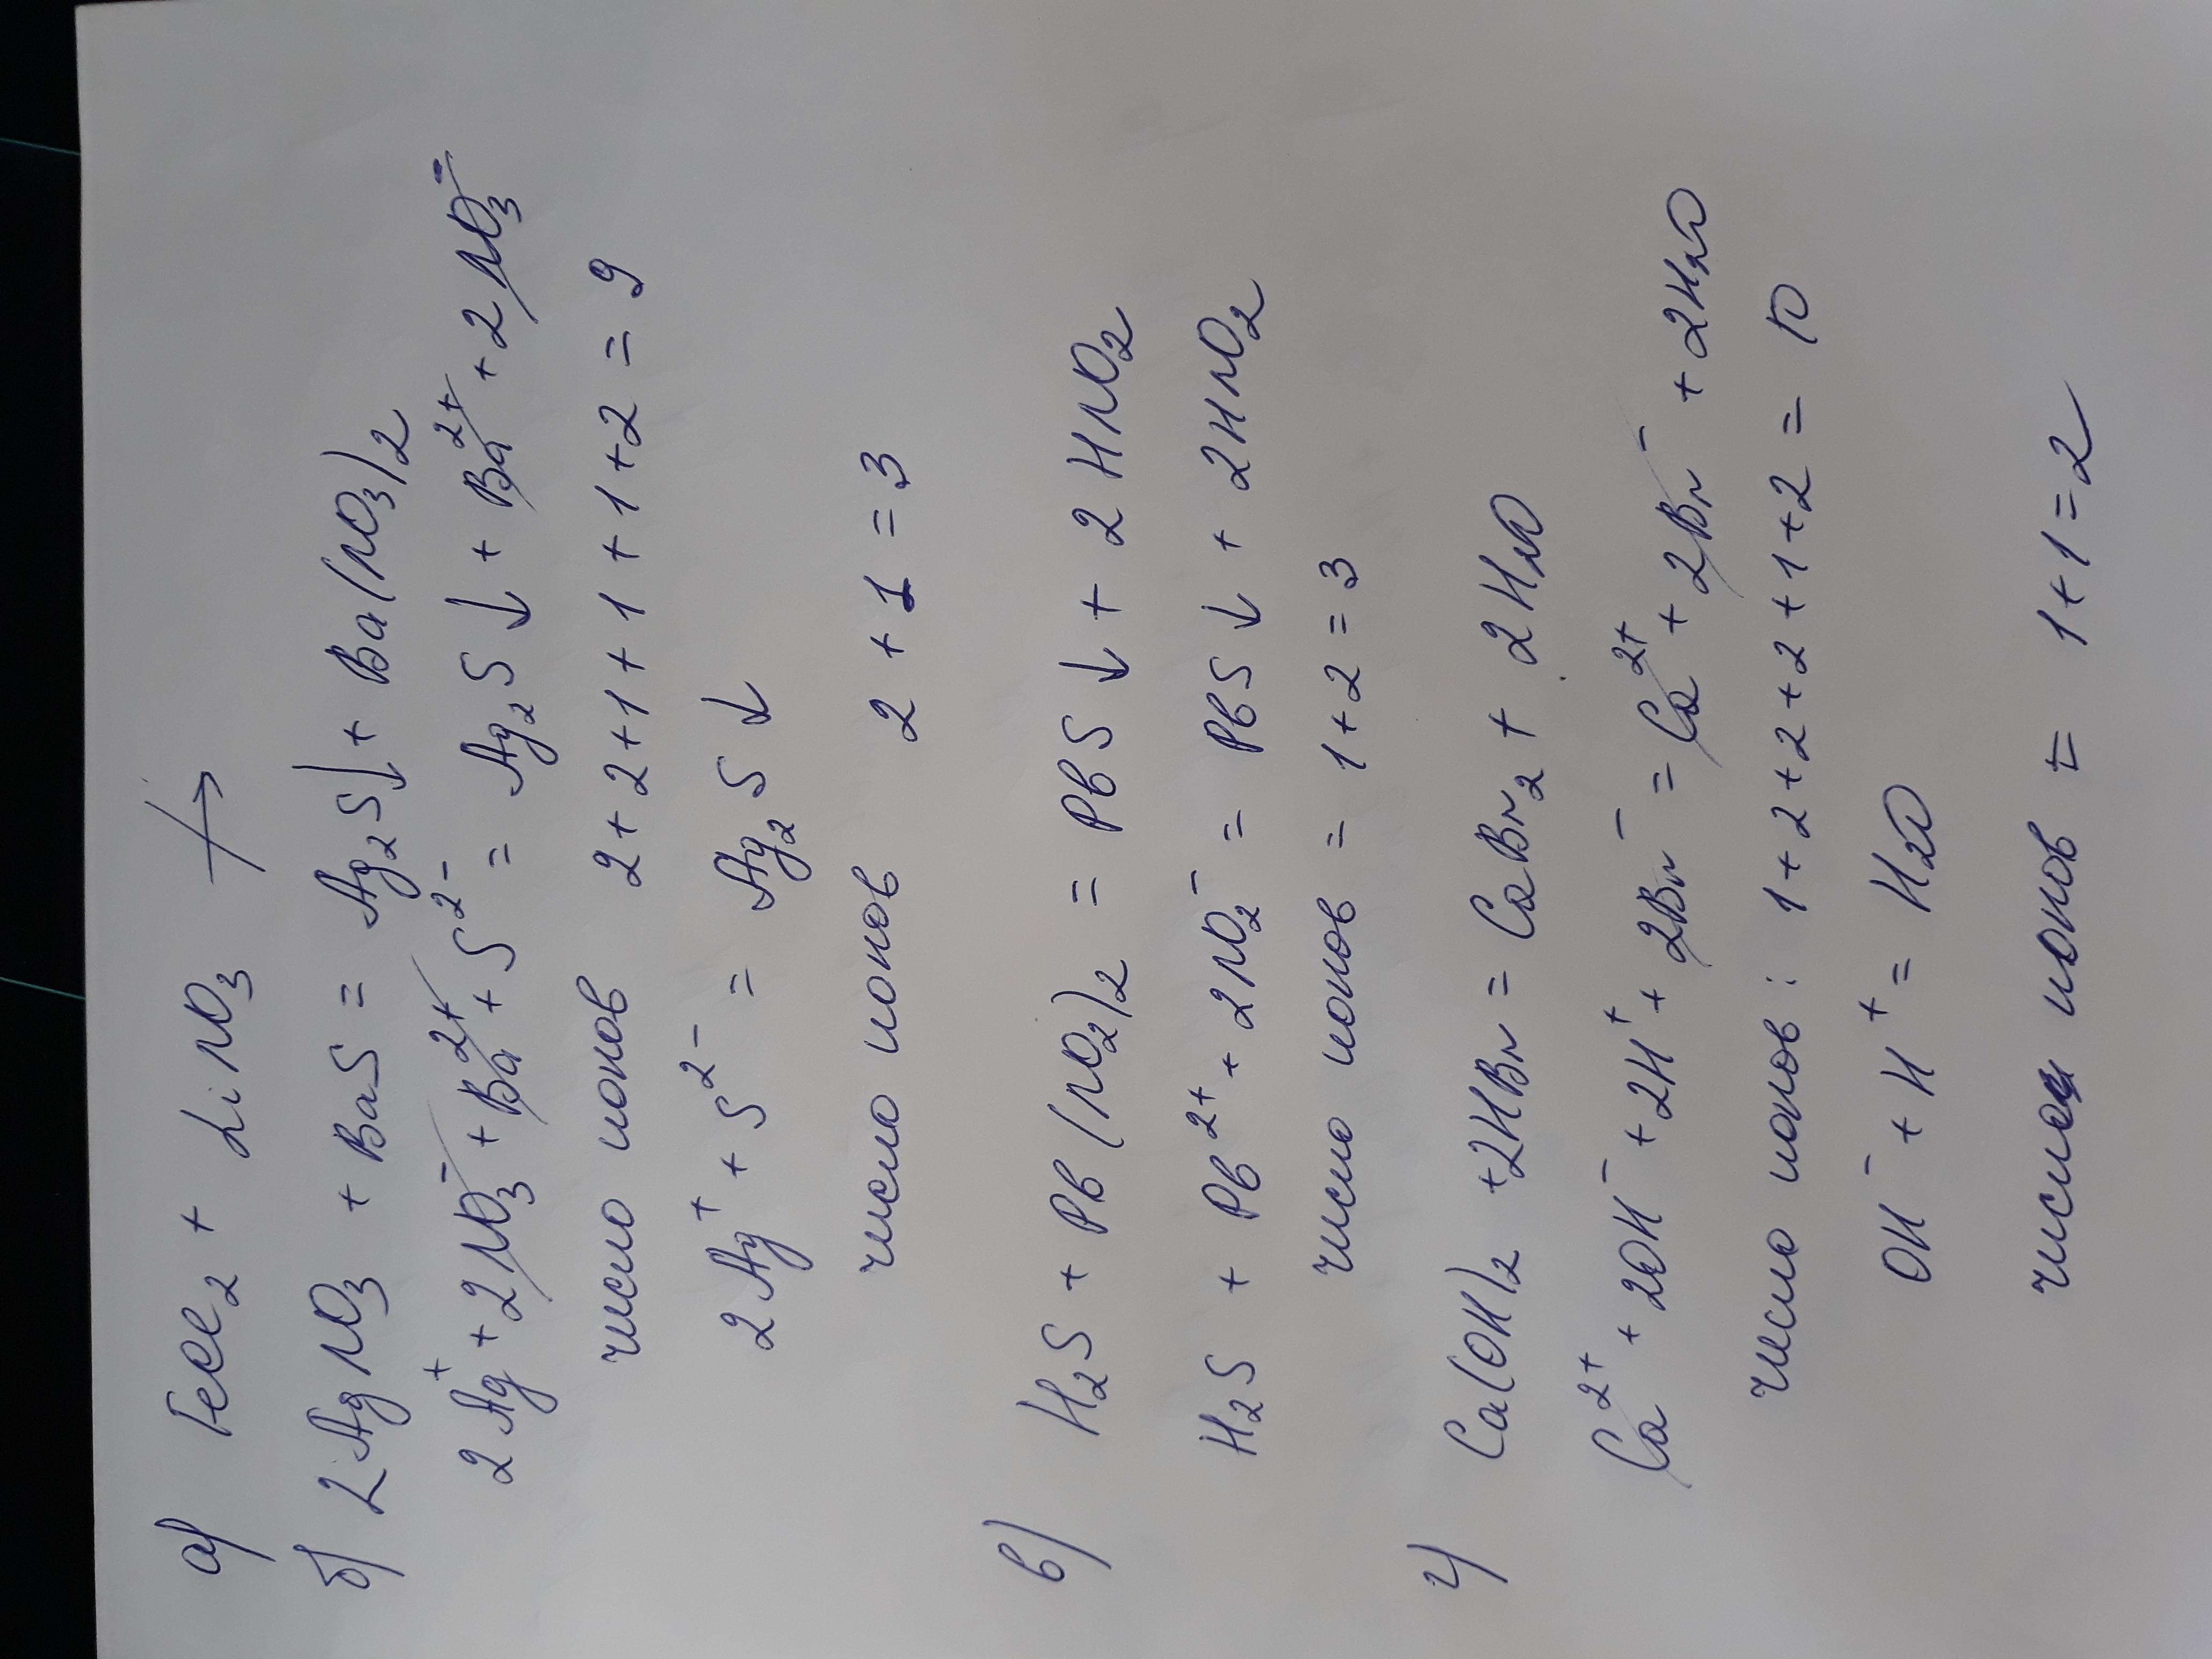 а) FeCl₂ + LiNO₃ ↛
б) 2AgNO₃ + BaS = Ag₂S↓ + Ba(NO₃)₂
2Ag⁺ + 2NO₃⁻ + Ba²⁺ + S²⁻ = Ag₂S↓ + Ba²⁺ + 2NO₃⁻
число ионов 2+2+1+1+1+2 = 9
2Ag⁺ + S²⁻ = Ag₂S↓
число ионов 2+1=3
в) H₂S + Pb(NO₂)₂ = PbS↓ + 2HNO₂
H₂S + Pb²⁺ + 2NO₂⁻ = PbS↓ + 2HNO₂
число ионов = 1+2=3
г) Ca(OH)₂ + 2HBr = CaBr₂ + 2H₂O
Ca²⁺ + 2OH⁻ + 2H⁺ + 2Br⁻ = Ca²⁺ + 2Br⁻ + 2H₂O
число ионов: 1+2+2+2+1+2 = 10
OH⁻ + H⁺ = H₂O
число ионов = 1+1=2